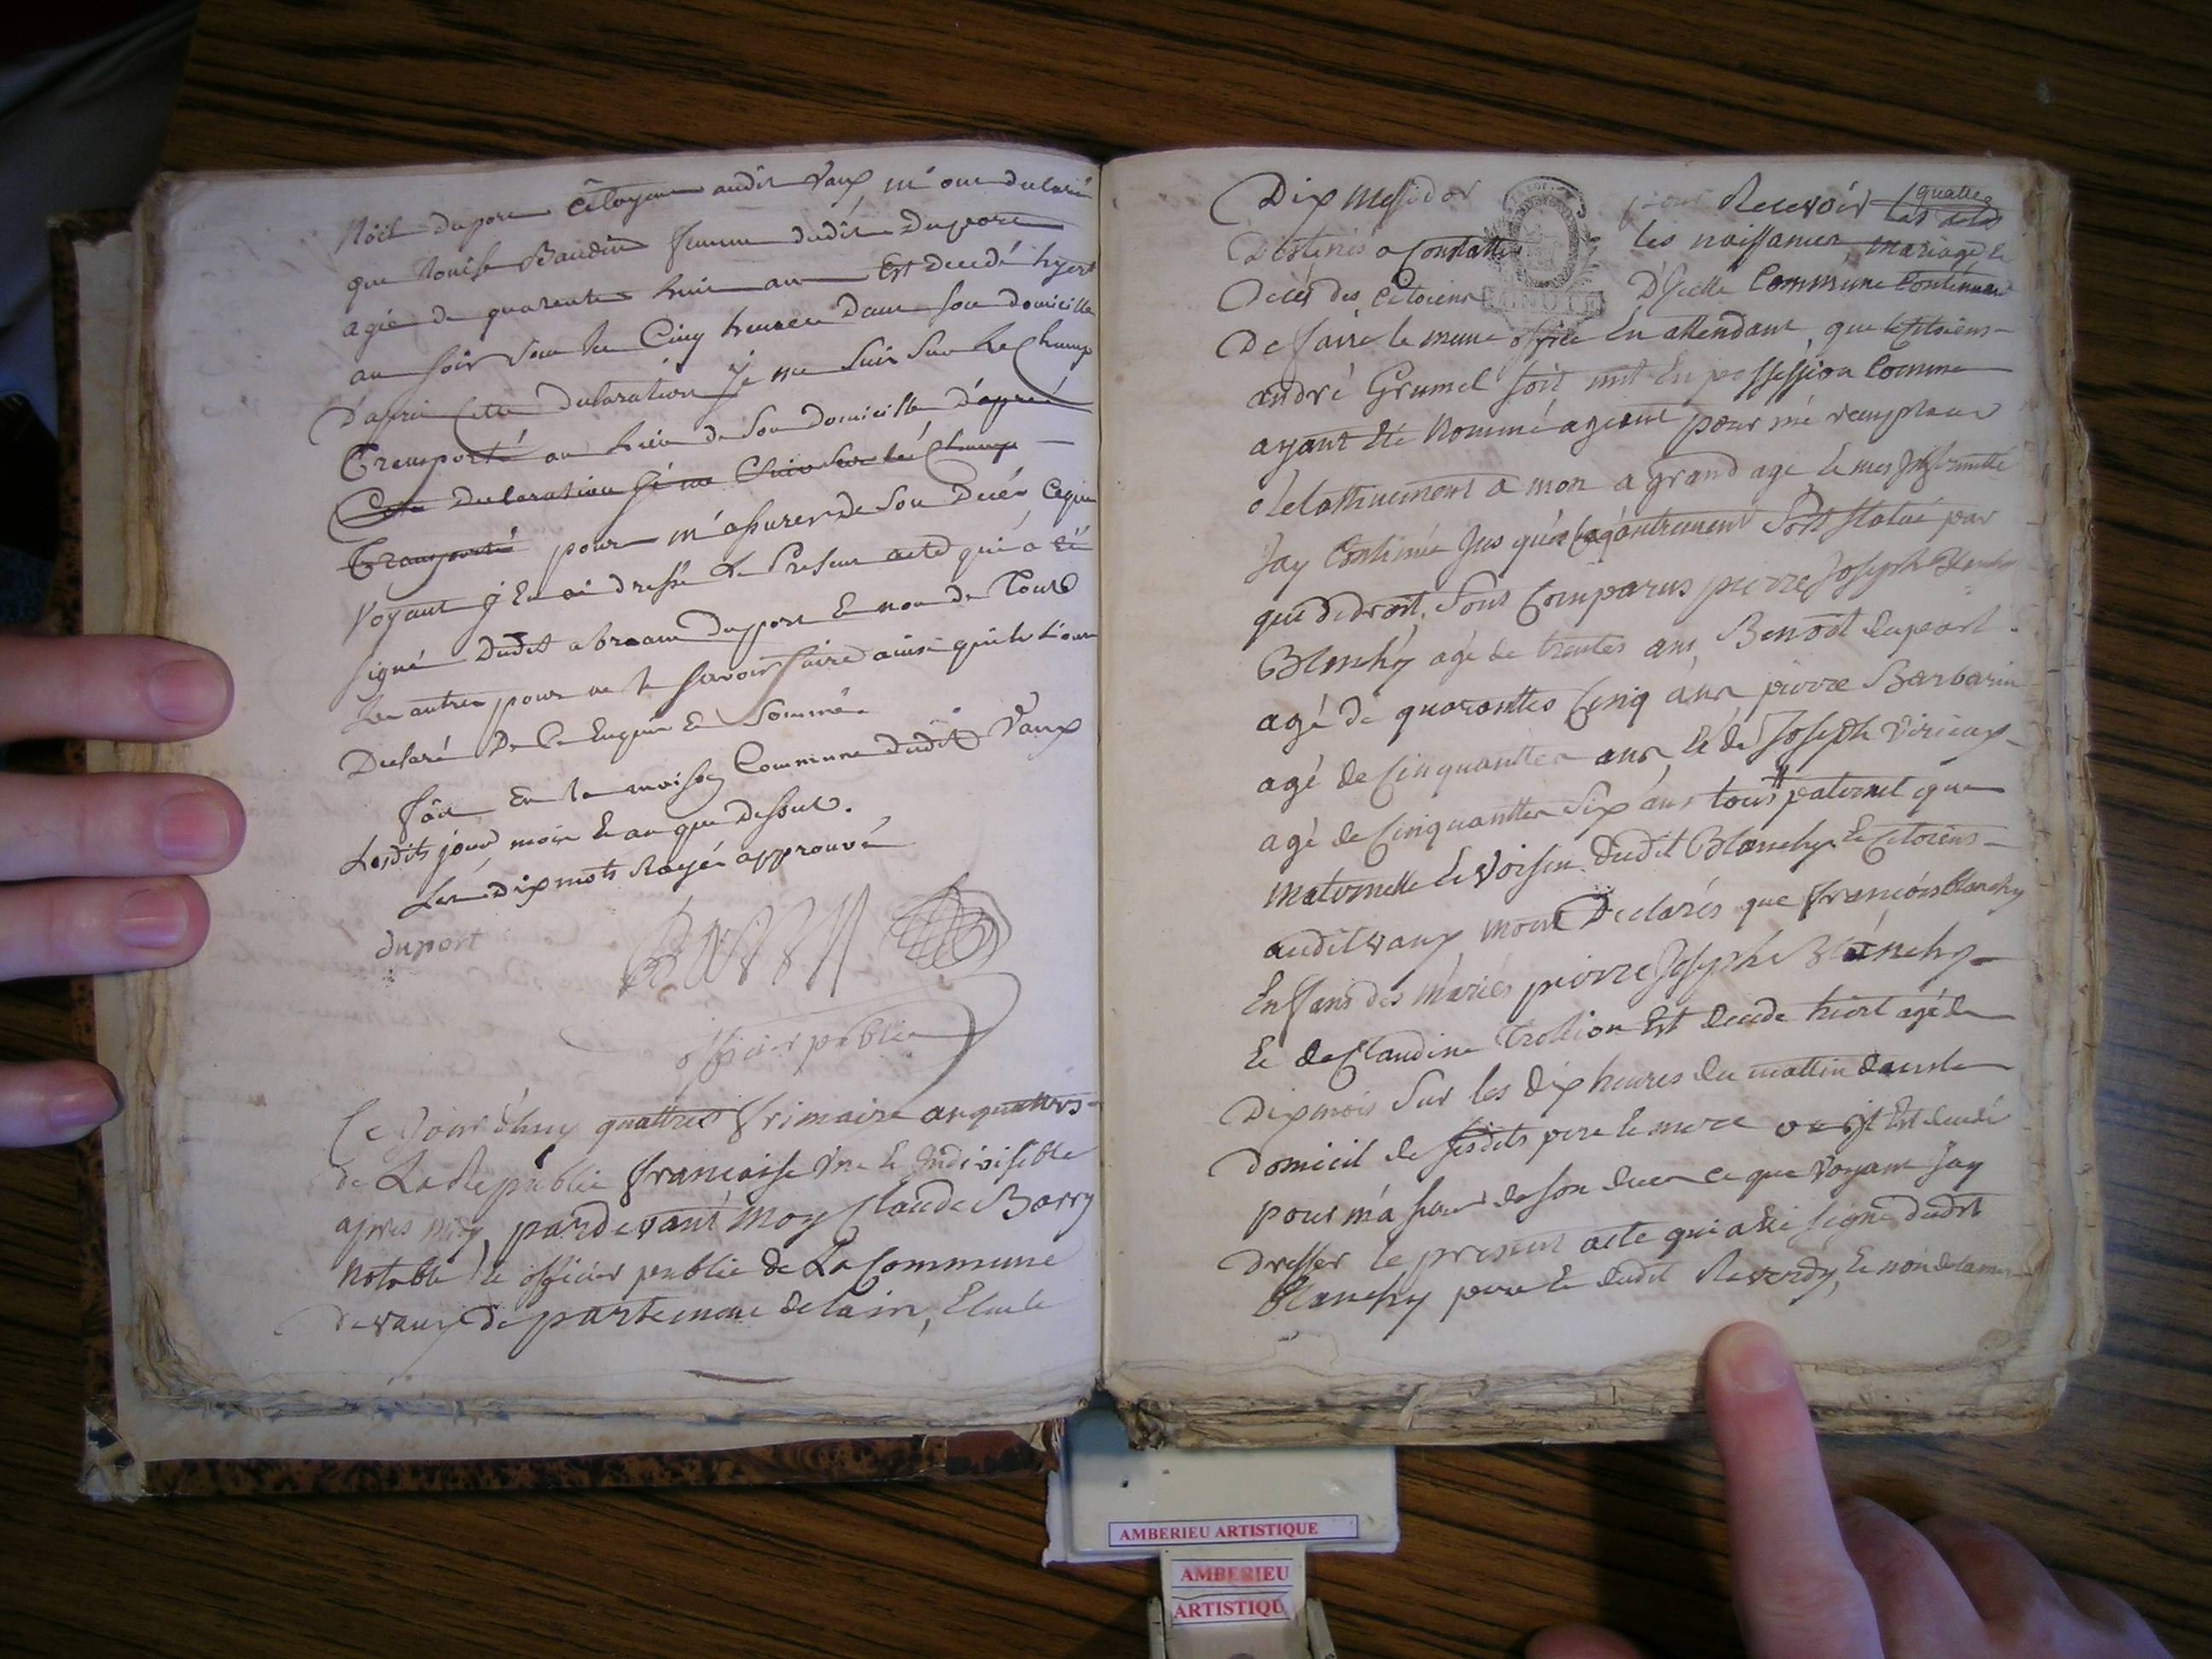 Noël duport Citoyen audit Vaux m'ont declaré
que Louise Baudin femme dudit Duport
agée de quarente huit ans Est decedé hyert
au soir sur les Cinq heures dans son domicille
D'apres Cette declaration Je me suis sur le Champ
Transporté au lieu de Son Domicille D'apres
Cette declaration Je me suis sur le Champ
Transporté pour m'assurer de son Decés Ceque
Voyant J En ai dressé le Present acte qui a été
signé dudit abraam duport E non de Tous
Les autres pour ne le savoir faire ainsi qu'ils L'ont
Declaré De Ce Enquis E Sommés
fait En la maison Commune dudit Vaux
Lesdits jour mois E an que dessus.
Les dix mots Rayés approuvé
duport
officier public
Ce Jour d'huy quattres frimaire an quattres
de La Republic francaise Une E Indivisible
apres midy pardevant moy Claude Barry
Notable E officier public de La Commune
de vaux departement de lain, Elu le
Dix Messidor pour Recevoir quatre
les actes
Destinés a Constatter les naissances, mariage E
Decés des Citoiens D'Icelle Commune Continuant
MINUTE
De faire le meme office En attendant, que le Citoiens
andré Grumel soit mit En possession Comme
ayant Eté Nommé agent pour me remplacer
attuement a mon a grand age, E mes Infirmitté
Jay Continué Jus qu'es autrement Soit statué par
que de droit, Sont Comparus pierre Joseph Blanchy
Blanchy agé de trentes ans, Benoit duport
agé de quarantes Cinq ans pierre Barbarin
agé de Cinquanttes ans E de Joseph
agé de Cinquanttes Six ans tous paternel que
Maternelle E Voisin dudit Blanchy E Citoiens
audit vaux mont Declarés que francois Blanchy
Enffans des Mariés pierre Joseph Blanchy
E de Claudine Trollion Est decede hiert agé de
Dix mois Sur les dix heures du mattin dans le
domicil de sesdits pere E mere Est decedé
pour m'a surer de son deces ce que Voyant Jay
Dresser le present acte qui a Eté signé dudit
Blanchy pere E dudit Reverdy, E non de la mere
AMBERIEU ARTISTIQUE
AMBERIEU
ARTISTIQU